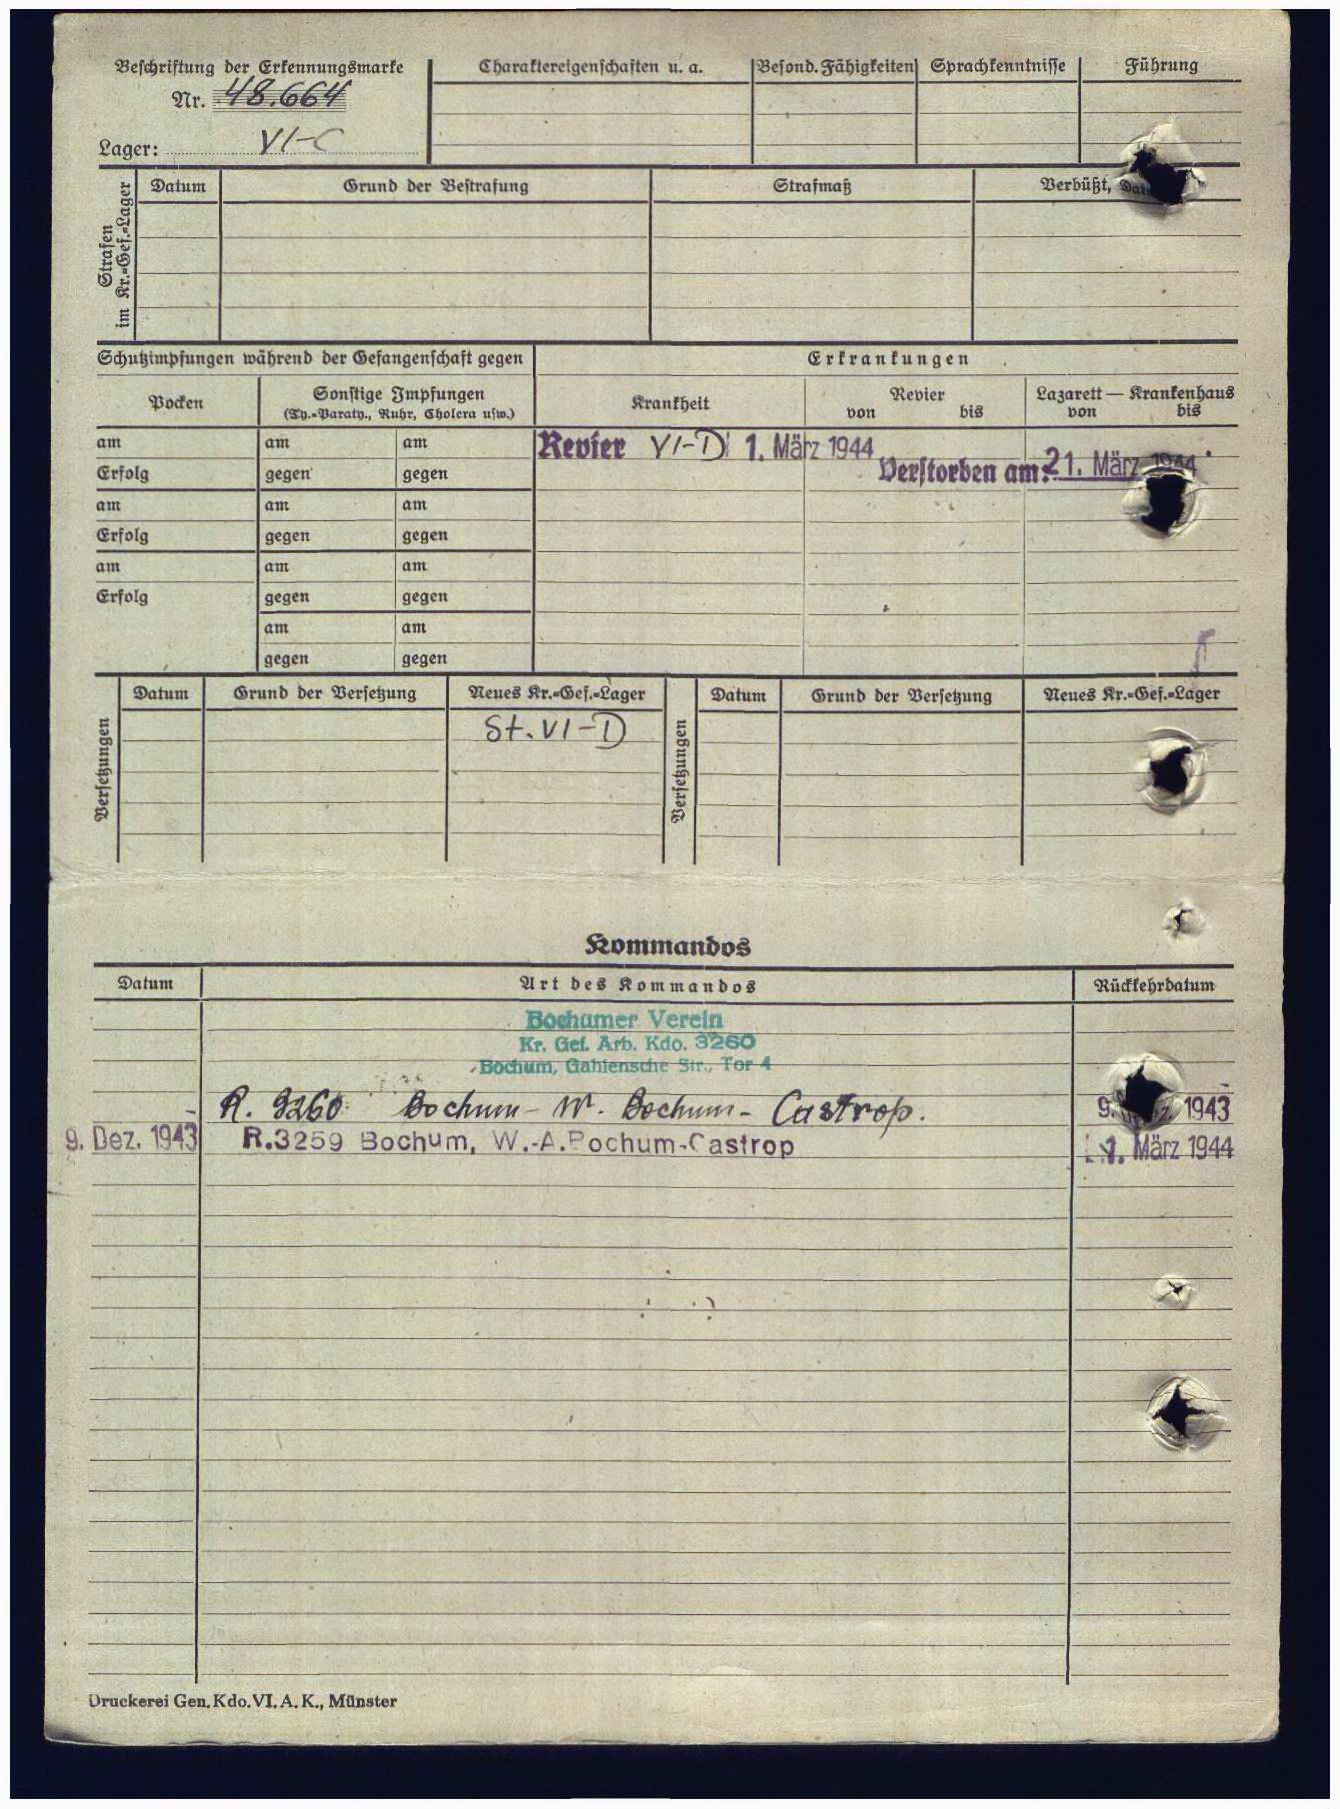 Beschriftung der Erkennungsmarke
Nr. 48.664
Lager: VI-C
Charaktereigenschaften u. a.
Besond. Fähigkeiten
Sprachkenntnisse
Führung
Strafen
im Kr.=Gef.=Lager
Datum
Grund der Bestrafung
Strafmaß
Verbüßt,
Schutzimpfungen während der Gefangenschaft gegen
Erkrankungen
Pocken
Sonstige Impfungen
(Ty.=Paraty., Ruhr, Cholera usw.)
Krankheit
Revier
von bis
Lazarett — Krankenhaus
von bis
am am am
Erfolg gegen gegen
am am am
Erfolg gegen gegen
am am am
Erfolg gegen gegen
am am
gegen gegen
Revier VI-D 1. März 1944
Verstorben am: 21. März 1944
Versetzungen
Datum
Grund der Versetzung
Neues Kr.=Gef.=Lager
St. VI-D
Versetzungen
Datum
Grund der Versetzung
Neues Kr.=Gef.=Lager
Kommandos
Datum
Art des Kommandos
Rückkehrdatum
Bochumer Verein
Kr. Gef. Arb. Kdo. 3260
Bochum, Gahlensche Str., Tor 4
R. 3260 Bochum - W. Bochum - Castrop. 9. 1943
9. Dez. 1943 R.3259 Bochum, W.-A.Bochum-Castrop 1. März 1944
Druckerei Gen. Kdo. VI. A. K., Münster